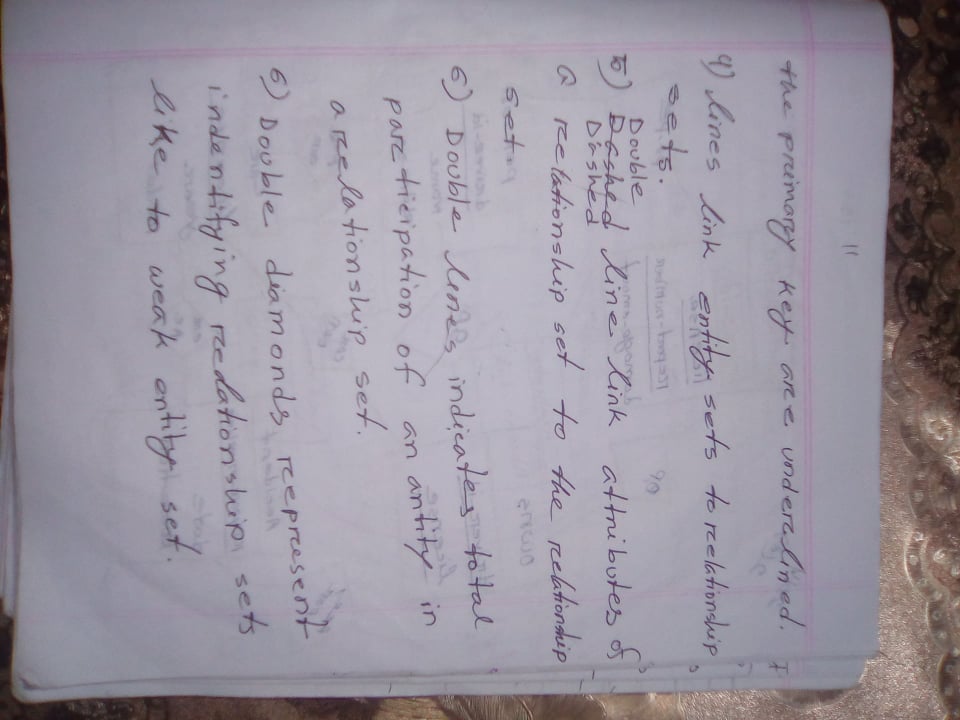 11
the primary key are underlined.
4) lines link entity sets to relationship
sets.
Double
5) Dashed line link attributes of
Dashed
a relationship set to the relationship
set.
6) Double lines indicates total
participation of an antity in
a relationship set.
6) Double diamonds represent
indentifying relationship sets
like to weak entity set.